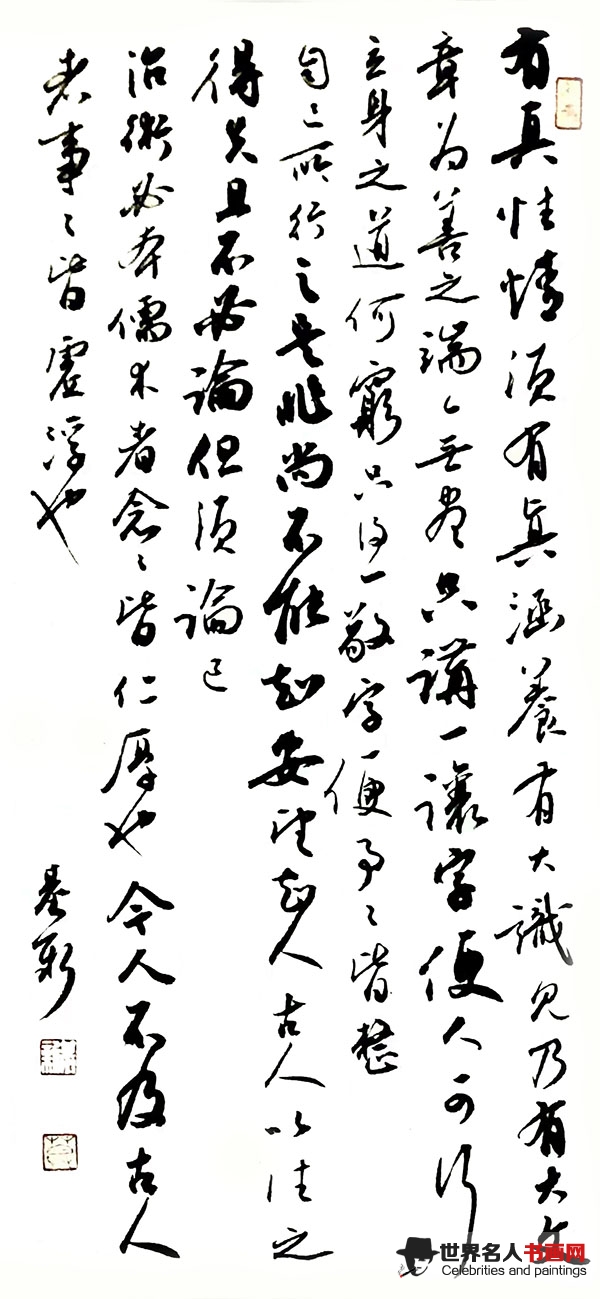 有真性情須有真涵養有大識見乃有大文
章为善之端々无尽只講一讓字便人可行
立身之道何窮只得一敬字便事々皆整
自己所行之是非尚不能知安望知人古人以往之
得失且不必論但須論己
治術必本儒术者念々皆仁厚也今人不及古人
者事々皆虛浮也
世界名人书画网
Celebrities and paintings